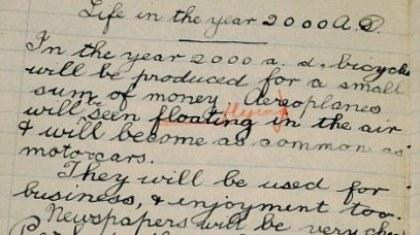 Life in the year 2000 A.D.
In the year 2000 a. d. bicycles
will be produced for a small
sum of money. Aeroplanes
will seen floating flying in the air
& will become as common as
motorcars.
They will be used for
business, & enjoyment too.
Newspapers will be very